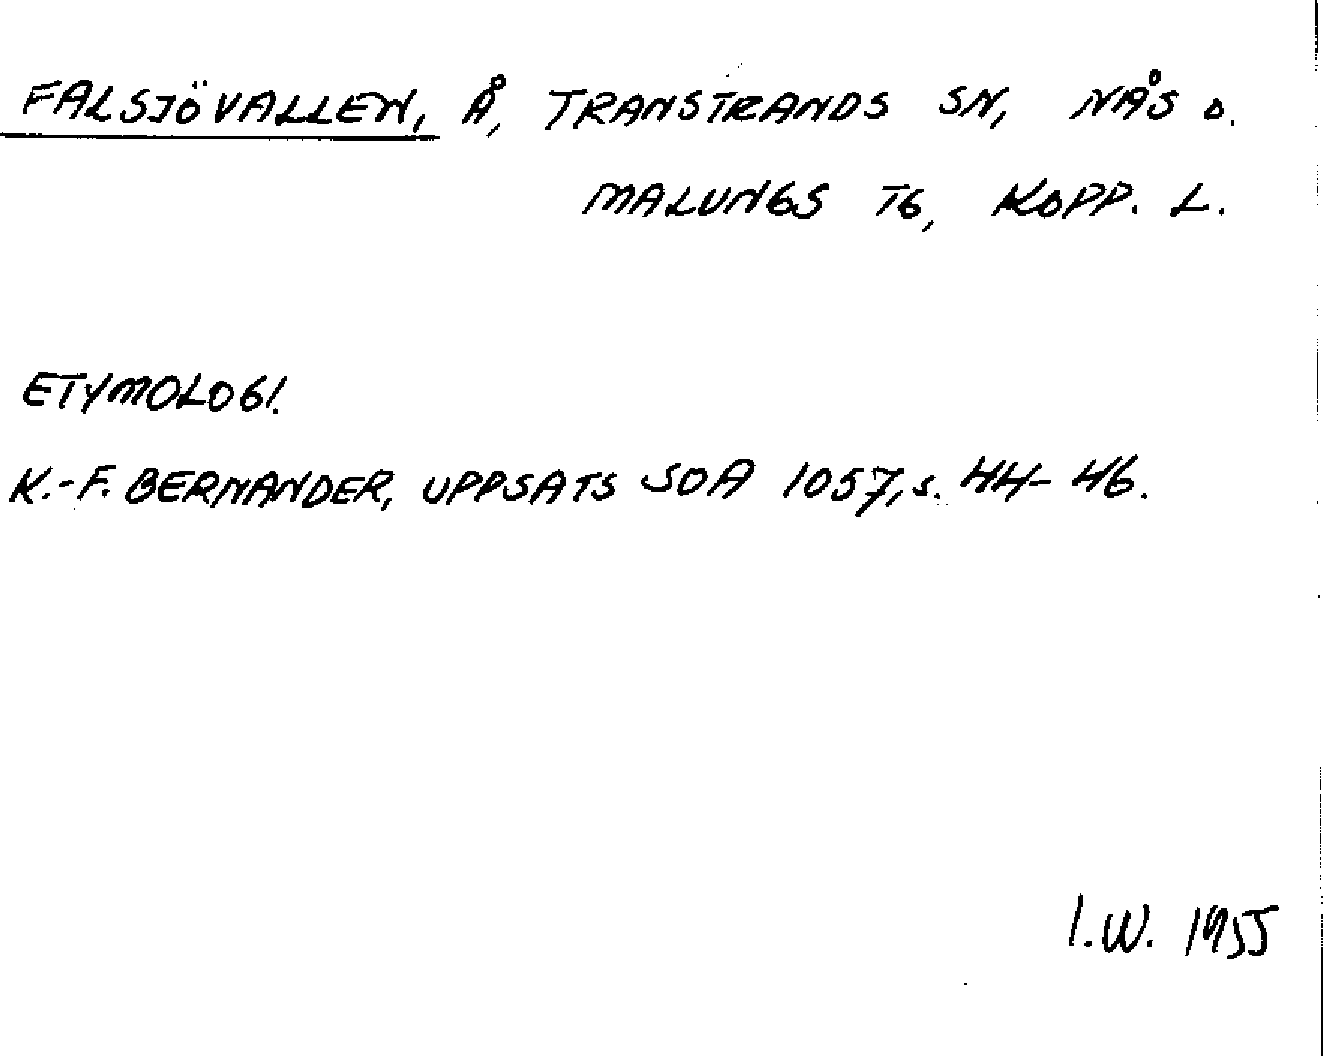 FALSJÖVALLEN, Å, TRANSTRANDS SN, NÅS O.
MALUNGS TG, KOPP. L.
ETYMOLOGI.
K.-F. BERNANDER, UPPSATS SOA 1057, S. 44-46.
I.W. 1955